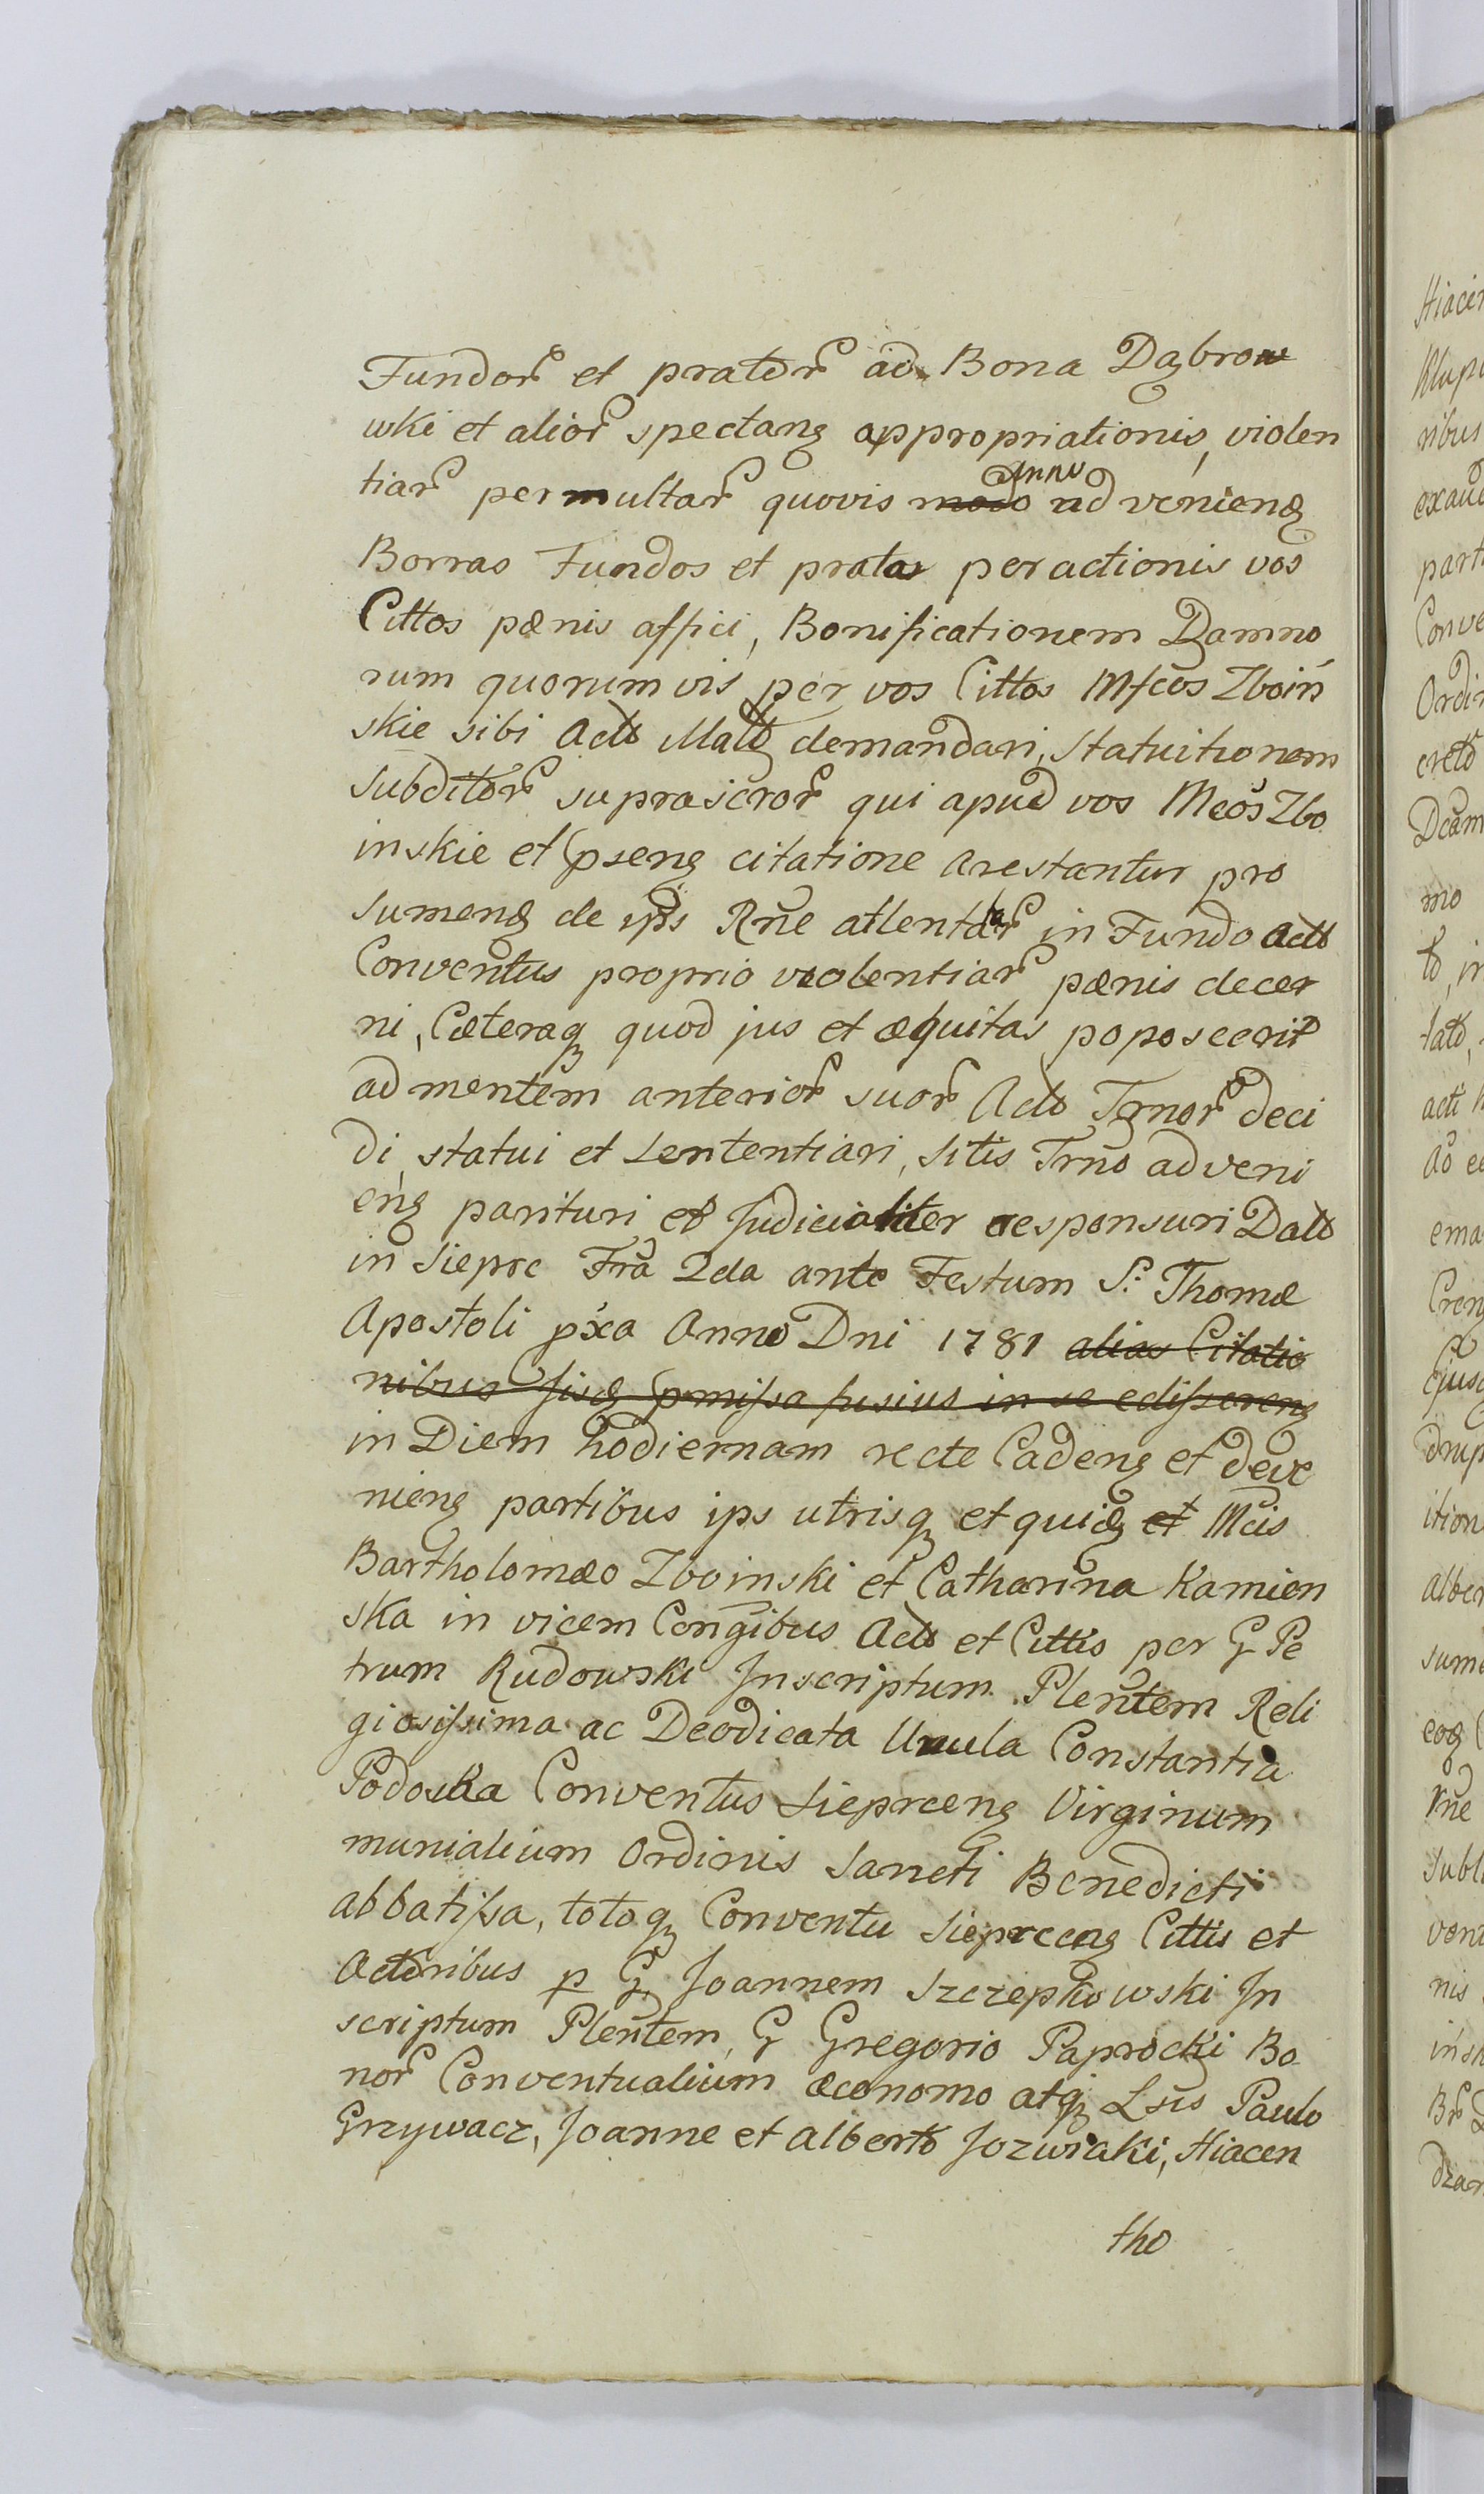 Fundor et prator ad Bona Dąbrow
wki et alior spectang appropriationis, violen
tiar permultar quovis modo Anno ad venieng
Borras Fundos et pratas peractionis vos
Cittos pænis affici, Bonificationem Damno
rum quorumvis per vos Cittos Mfcos Zboiń
skie sibi Actb Malb demandari, statuitionem
Subditor suprascror qui apud vos Mcos Zbo
inskie et pseng citatione arestantur pro
sumeng de ips Rne attentar in Fundo Actb
Conventus proprio violentiar pænis decer
ni, Cæteraq quod jus et æquitas poposcerit
ad mentem anterior suor Actb Trnor deci
di statui et sententiari, sitis Trno adveni
eng parituri et Judicialiter responsuri Datt
in Sieprc Fra 2da ante Festum S. Thomæ
Apostoli pxa Anno Dni 1781 alias Citatio
nibus hisq pmissa fusius in se edissereng
in Diem hodiernam recte Cadeng et deve
nieng partibus ips utrisq et quidg et Mcis
Bartholomæo Zboinski et Catharina Kamien
ska in vicem Congibus Actb et Cittis per G Pe
trum Rudowski Inscriptum Plentem Reli
giosissima ac Deodicata Ursula Constantia
Podoska Conventus Siepreeng Virginum
munialium Ordinis Sancti Benedicti
abbatissa, totoq Conventu Siepreeng Cittis et
Actoribus p G Joannem Szczepkowski In
scriptum Plentem, G Gregorio Paprocki Bo
nor Conventualium œconomo atq Lsis Paulo
Grzywacz, Joanne et Alberto Jozwiaki, Hiacen
tho